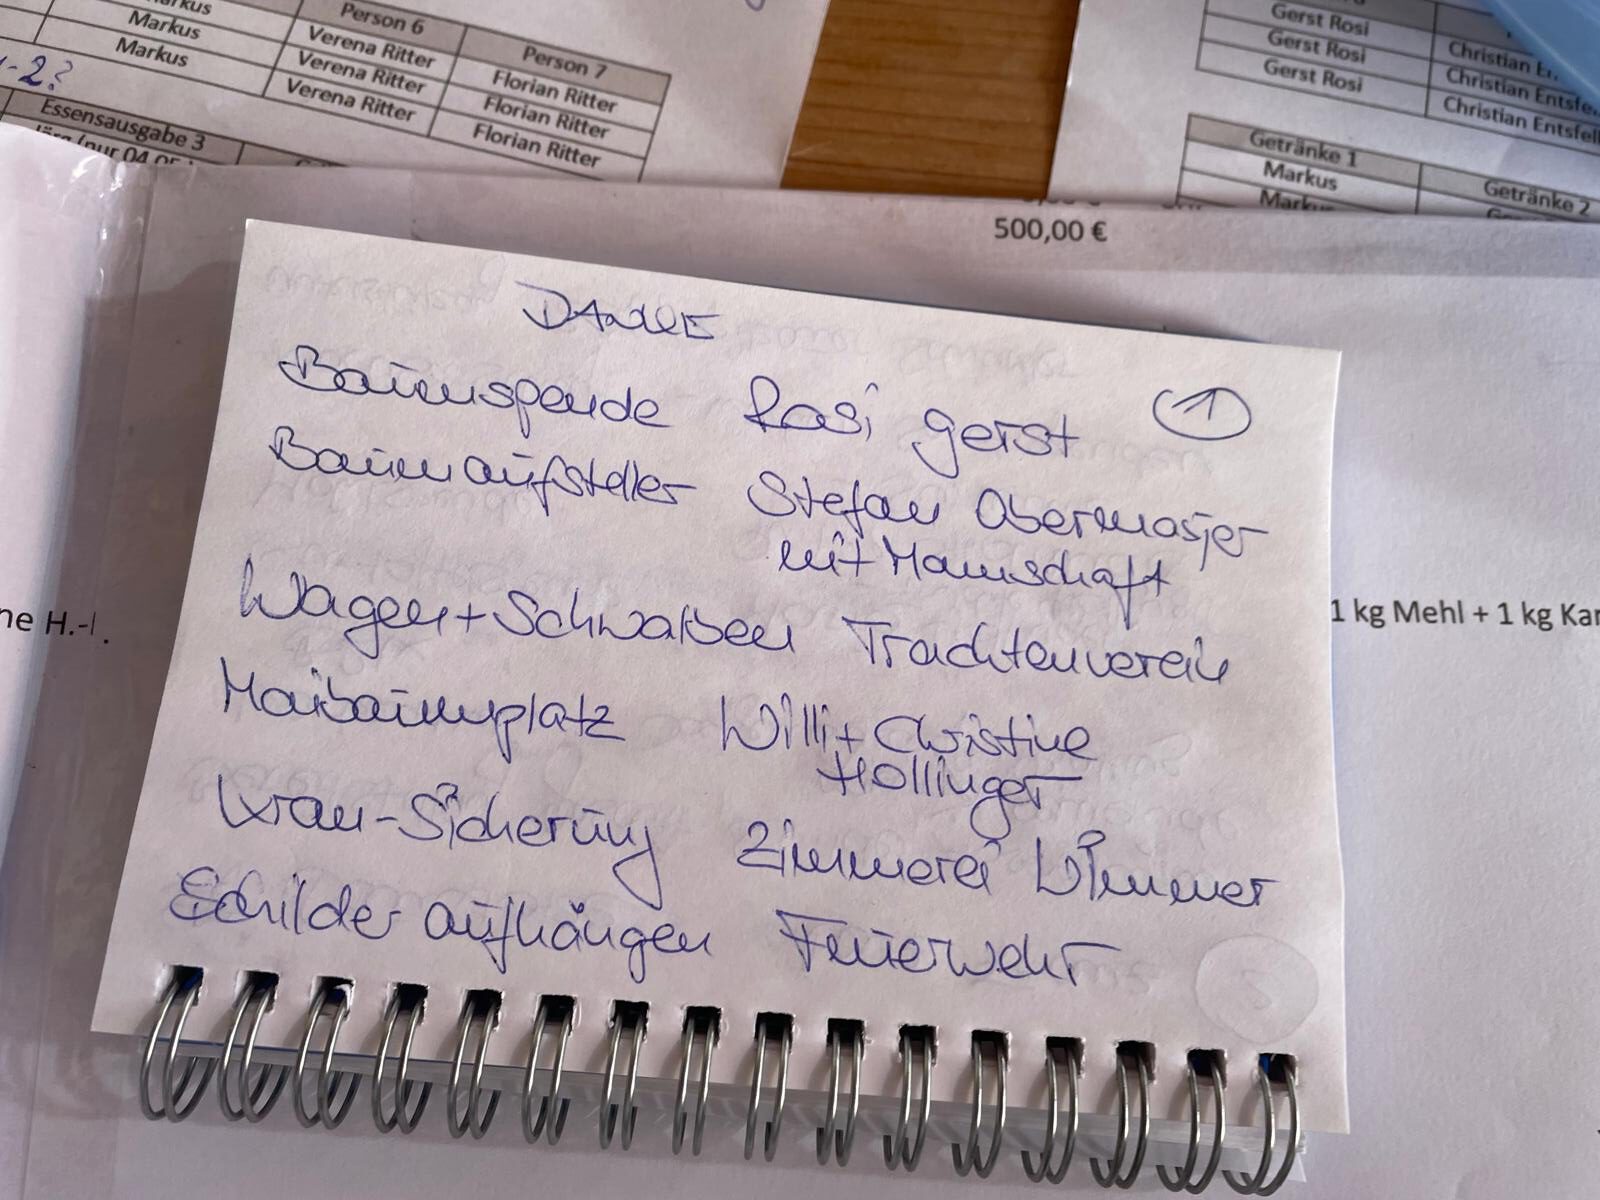 Markus
Markus
Markus
Person 6
Verena Ritter
Verena Ritter
Verena Ritter
Person 7
Florian Ritter
Florian Ritter
Florian Ritter
-2?
Essensausgabe 3
(nur 04.05.
Gerst Rosi
Gerst Rosi
Gerst Rosi
Christian
Christian Entsfe
Christian Entsfell
Getränke 1
Markus
Markus
Getränke 2
500,00 €
DANKE
①
Baumspende Rosi Gerst
Baumaufsteller Stefan Obermaier
mit Mannschaft
Wagen + Schwalben Trachtenverein
Maibaumplatz Willi + Christine
Hollinger
Kran-Sicherung Zimmerei Wimmer
Schilder aufhängen Feuerwehr
ne H.-
1 kg Mehl + 1 kg Kar